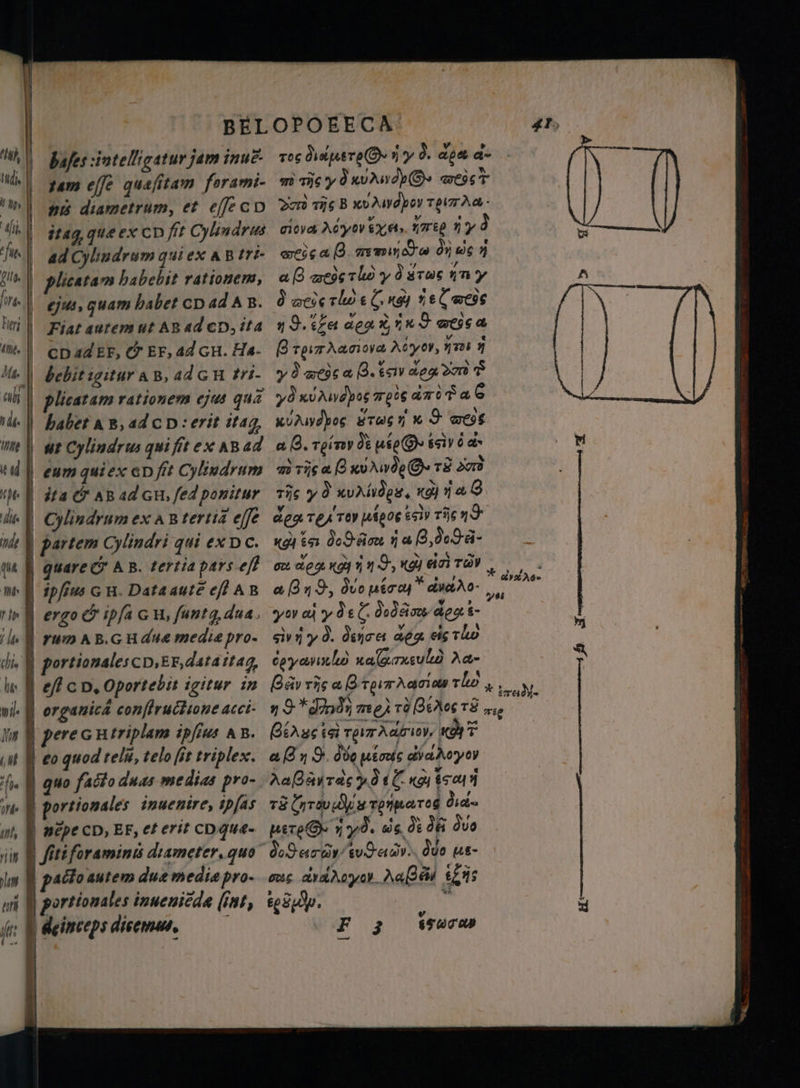 BELOPOEECA 41.
bases: intelligatur jam inuē-
tam esse quæsitam forami-
nis diametrum, et esse CD
itaq, quæ ex CD fit Cylindrus
ad Cylindrum qui ex A B tri-
plicatam habebit rationem,
ejus, quam habet CD ad A B.
Fiat autem ut AB ad CD, ita
CD ad EF, & EF, ad GH. Ha-
bebit igitur A B, ad G H tri-
plicatam rationem ejus quā
habet A B, ad C D: erit itaq,
ut Cylindrus qui fit ex AB ad
eum qui ex CD fit Cylindrum
ita & AB ad GH, sed ponitur
Cylindrum ex A B tertiā esse
partem Cylindri qui ex D C.
quare & A B. tertia pars est
ipsius G H. Data autē est A B
ergo & ipsa G H, sunt q, duæ.
rum A B. G H duæ mediæ pro-
portionales CD, EF, data itaq,
est C D, Oportebit igitur in
organicâ constructione acci-
pere G H triplam ipsius A B.
eo quod telū, telo fit triplex.
quo facto duas medias pro-
portionales inuenire, ipsas
nēpe CD, EF, et erit CD quæ-
siti foraminis diameter, quo
pacto autem duæ mediæ pro-
portionales inueniēdæ sint,
deinceps dicemus,
τος διάμετρος ἡ γ δ. ἄρα ἀ-
πὸ τῆς γ δ κύλινδρος πρὸς τ
ἀπὸ τῆς β κύλινδρον τριπλα-
σίονα λόγον ἔχει, ἤπερ ἡ γ δ
πρὸς α β. πεποιήσθω δὴ ὡς ἡ
α β πρὸς τὴν γ δ ὕτως ἥτη γ
δ πρὸς τὴν ε ζ, καὶ ἡ ε ζ πρὸς
η θ. ἕξει ἄρα καὶ ἡ κ θ πρὸς α
β τριπλασίονα λόγον, ἤτοι ἡ
γ δ πρὸς α β. ἔστιν ἄρα ἀπὸ τ
γ δ κύλινδρος πρὸς ἀπὸ τ α β
κύλινδρος ὕτως ἡ κ θ πρὸς
α β. τρίτον δὲ μέρος ἐστὶν ὁ ἀ-
πὸ τῆς α β κυλίνδρος τῦ ἀπὸ
τῆς γ δ κυλίνδρυ, καὶ ἡ α β
ἄρα τρίτον μέρος ἐστὶν τῆς η θ
καὶ ἔστι δοθεῖσα ἡ α β, δοθεῖ-
σα ἄρα καὶ ἡ η θ, καὶ εἰσὶ τῶν
α β η θ, δύο μέσαι * ἀνάλο-
γον αἱ γ δ ε ζ. δοθεῖσα ἄρα ἐ-
στὶν ἡ γ δ. δεήσει ἄρα εἰς τὴν
ὀργανικὴν κατασκευὴν λα-
βεῖν τῆς α β τριπλασίαν τὴν
η θ * ἐπειδὴ περὶ τὸ βέλος τῦ
βέλυς ἐστὶ τριπλάσιον, καὶ τ
α β η θ. δύο μέσαις ἀνάλογον
λαβεῖν τὰς γ δ ε ζ. καὶ ἔσται ἡ
τῦ ζητυμένυ τρήματος διά-
μετρος ἡ γ δ. ὡς δὲ δεῖ δύο
δοθεισῶν εὐθειῶν. δύο μέ-
σας ἀνάλογον λαβεῖν ἑξῆς
ἐρῦμεν.
* ἀνάλο-
γοι
* ἐπειδή-
περ
F 3 ἔστωσαν